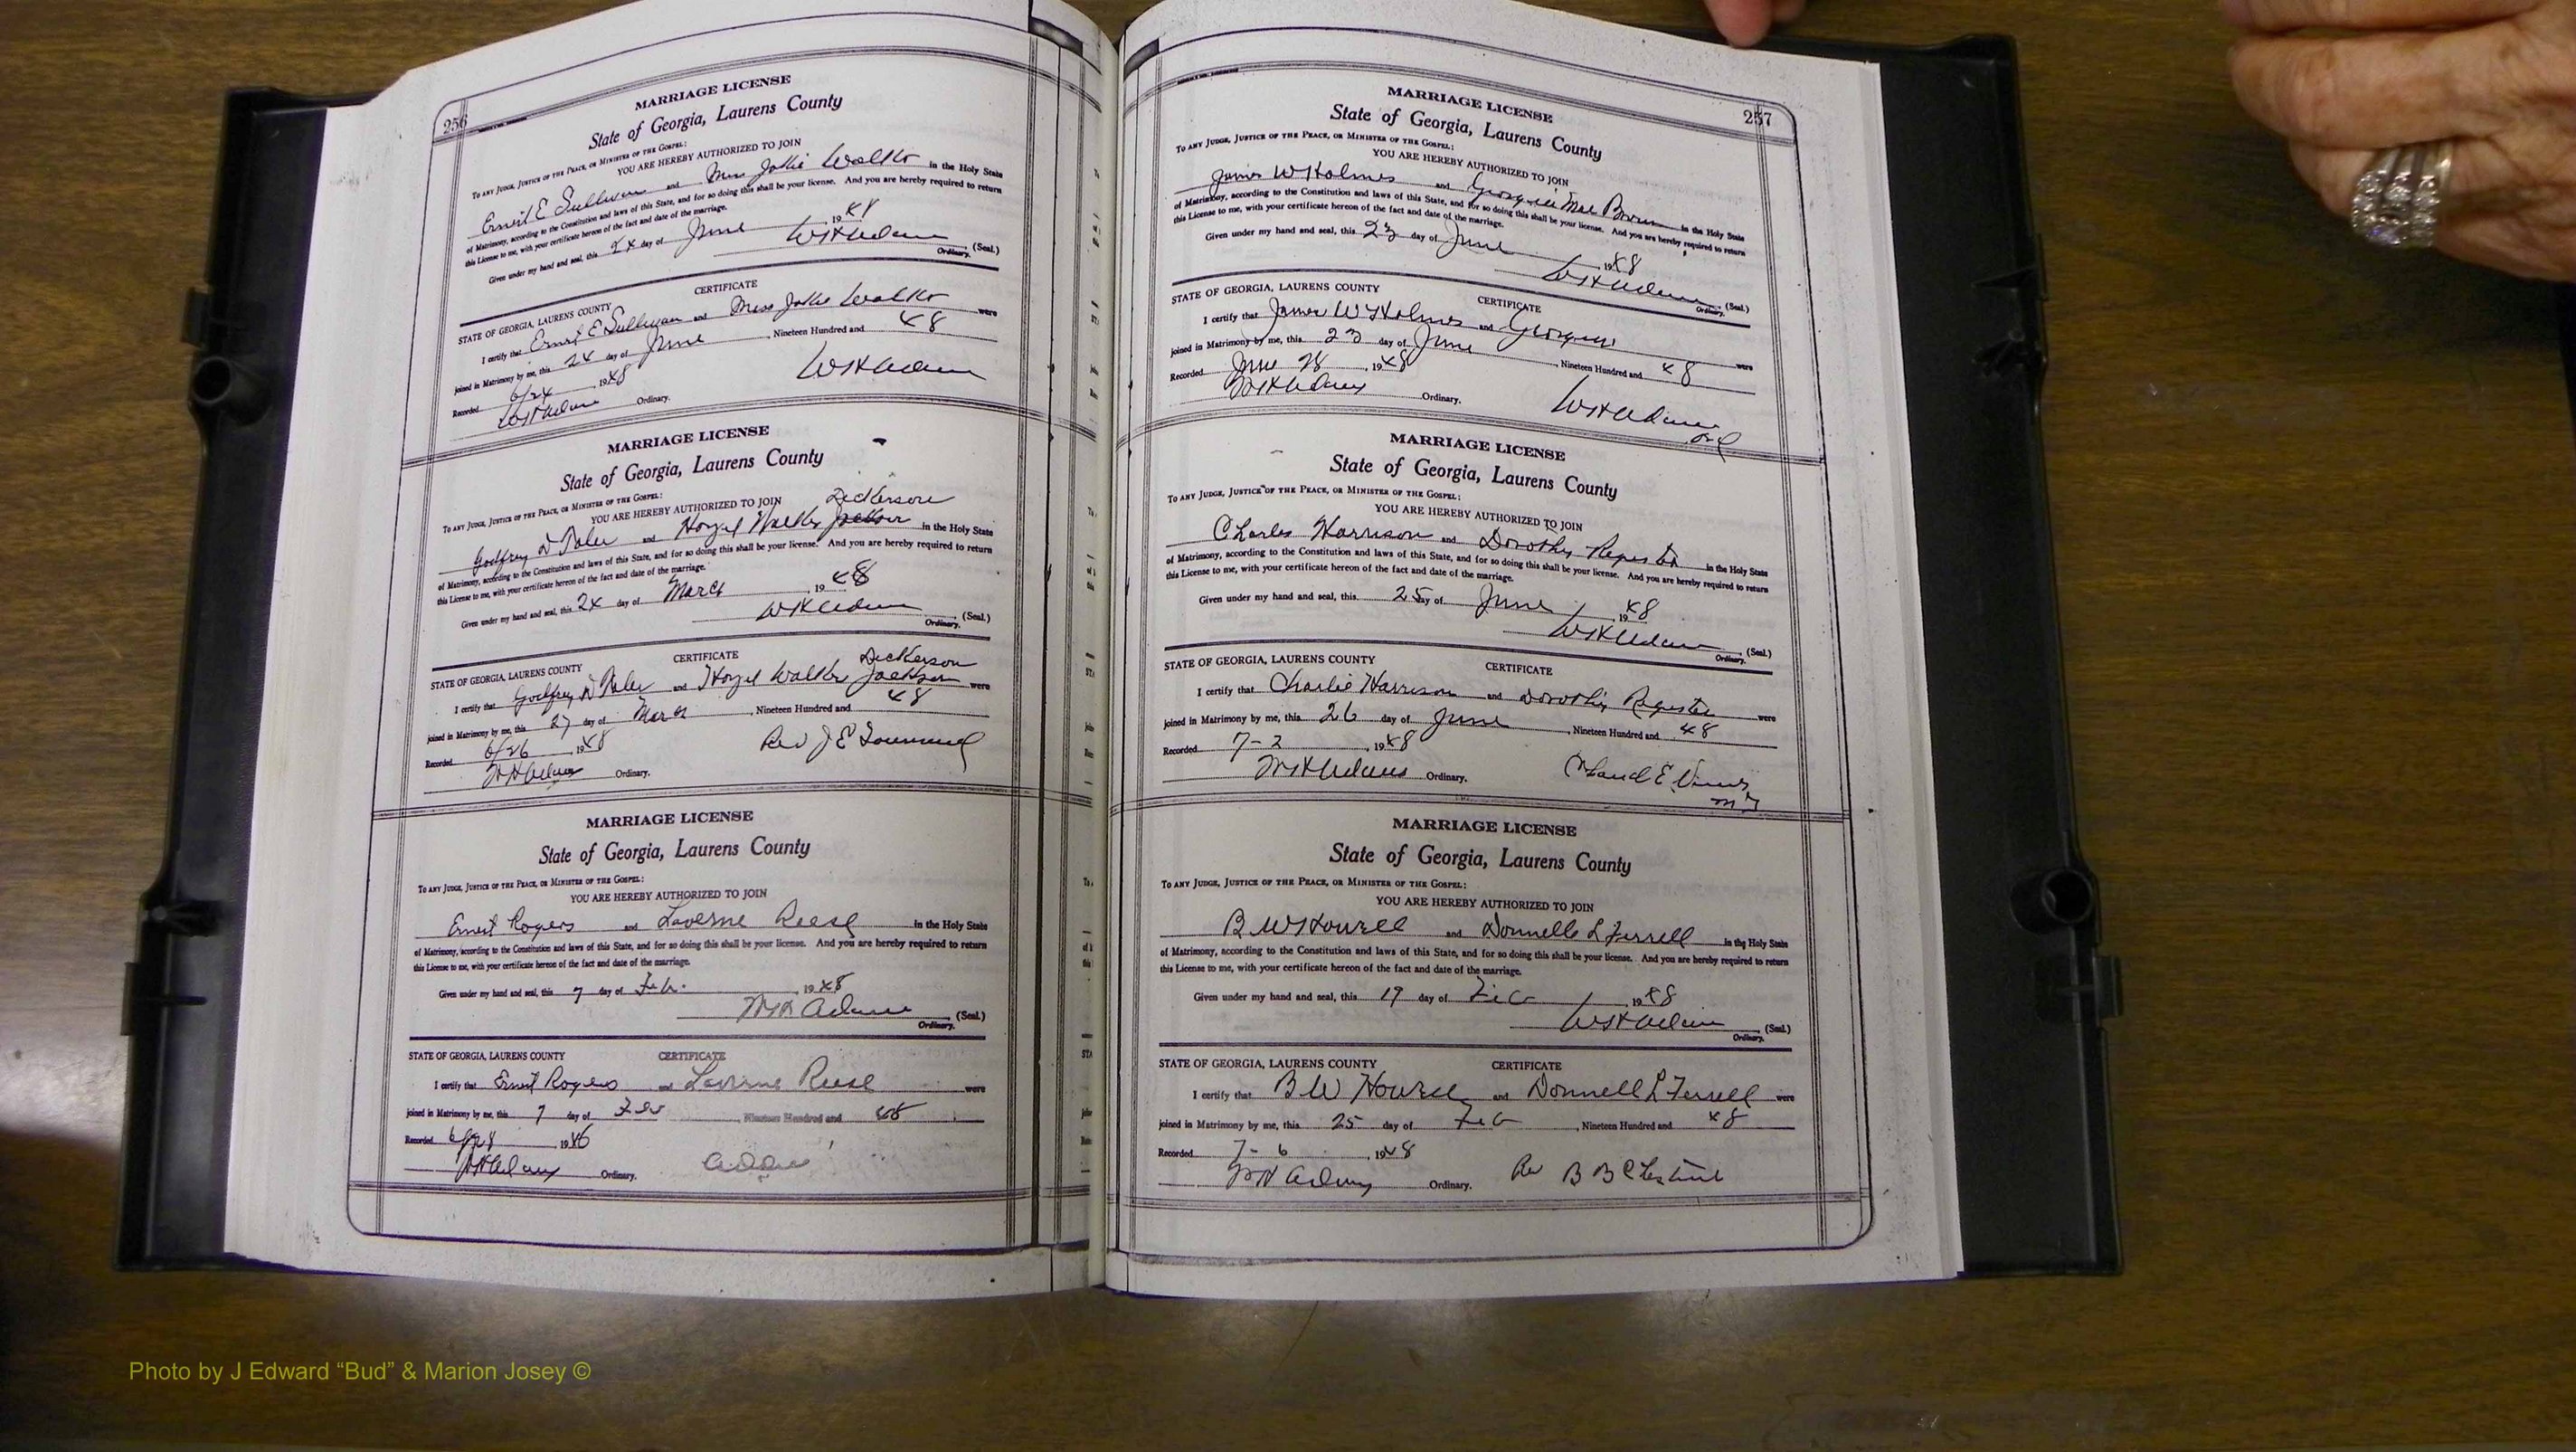 256
MARRIAGE LICENSE
State of Georgia, Laurens County
To any Judge, Justice of the Peace, or Minister of the Gospel:
YOU ARE HEREBY AUTHORIZED TO JOIN
Ernest E Sullivan and Miss in the Holy State
of Matrimony, according to the Constitution and laws of this State, and for so doing this shall be your license. And you are hereby required to return
this License to me, with your certificate hereon of the fact and date of the marriage.
Given under my hand and seal, this 24 day of June 1948
WH Adams (Seal.)
Ordinary.
CERTIFICATE
STATE OF GEORGIA, LAURENS COUNTY
I certify that Ernest E Sullivan and Miss were
joined in Matrimony by me, this 24 day of June, Nineteen Hundred and 48
Recorded 6/24, 1948 WH Adams
WH Adams Ordinary.
MARRIAGE LICENSE
State of Georgia, Laurens County
To any Judge, Justice of the Peace, or Minister of the Gospel:
YOU ARE HEREBY AUTHORIZED TO JOIN Dickerson
Godfrey D and Walker in the Holy State
of Matrimony, according to the Constitution and laws of this State, and for so doing this shall be your license. And you are hereby required to return
this License to me, with your certificate hereon of the fact and date of the marriage.
Given under my hand and seal, this 24 day of March, 1948
WH Adams (Seal.)
Ordinary.
CERTIFICATE Dickerson
STATE OF GEORGIA, LAURENS COUNTY
I certify that Godfrey D and Walker Jackson were
joined in Matrimony by me, this 27 day of March, Nineteen Hundred and 48
Recorded 6/26 1948 Rev J E
WH Adams Ordinary.
MARRIAGE LICENSE
State of Georgia, Laurens County
To any Judge, Justice of the Peace, or Minister of the Gospel:
YOU ARE HEREBY AUTHORIZED TO JOIN
Ernest Rogers and Laverne Reese in the Holy State
of Matrimony, according to the Constitution and laws of this State, and for so doing this shall be your license. And you are hereby required to return
this License to me, with your certificate hereon of the fact and date of the marriage.
Given under my hand and seal, this 7 day of Feb. 1948
WH Adams (Seal.)
Ordinary.
STATE OF GEORGIA, LAURENS COUNTY CERTIFICATE
I certify that Ernest Rogers and Laverne Reese were
joined in Matrimony by me, this 7 day of Feb, Nineteen Hundred and 48
Recorded 6/28 19
WH Adams Ordinary.
257
MARRIAGE LICENSE
State of Georgia, Laurens County
To any Judge, Justice of the Peace, or Minister of the Gospel:
YOU ARE HEREBY AUTHORIZED TO JOIN
James W Holmes and Georgia Mae Brown in the Holy State
of Matrimony, according to the Constitution and laws of this State, and for so doing this shall be your license. And you are hereby required to return
this License to me, with your certificate hereon of the fact and date of the marriage.
Given under my hand and seal, this 23 day of June, 1948
WH Adams (Seal.)
Ordinary.
STATE OF GEORGIA, LAURENS COUNTY CERTIFICATE
I certify that James W Holmes and were
joined in Matrimony by me, this 23 day of June, Nineteen Hundred and 48
Recorded June 28, 1948
WH Adams Ordinary. WH Adams
Ord
MARRIAGE LICENSE
State of Georgia, Laurens County
To any Judge, Justice of the Peace, or Minister of the Gospel:
YOU ARE HEREBY AUTHORIZED TO JOIN
Charles Harrison and Dorothy Register in the Holy State
of Matrimony, according to the Constitution and laws of this State, and for so doing this shall be your license. And you are hereby required to return
this License to me, with your certificate hereon of the fact and date of the marriage.
Given under my hand and seal, this 25 day of June, 1948
WH Adams (Seal.)
Ordinary.
STATE OF GEORGIA, LAURENS COUNTY CERTIFICATE
I certify that Charlie Harrison and Dorothy Register were
joined in Matrimony by me, this 26 day of June, Nineteen Hundred and 48
Recorded 7-2, 1948
WH Adams Ordinary. Claud E. Vines
MG
MARRIAGE LICENSE
State of Georgia, Laurens County
To any Judge, Justice of the Peace, or Minister of the Gospel:
YOU ARE HEREBY AUTHORIZED TO JOIN
B W Howell and Donnell L Ferrell in the Holy State
of Matrimony, according to the Constitution and laws of this State, and for so doing this shall be your license. And you are hereby required to return
this License to me, with your certificate hereon of the fact and date of the marriage.
Given under my hand and seal, this 19 day of Feb, 1948
WH Adams (Seal.)
Ordinary.
STATE OF GEORGIA, LAURENS COUNTY CERTIFICATE
I certify that B W Howell and Donnell L Ferrell were
joined in Matrimony by me, this 25 day of Feb, Nineteen Hundred and 48
Recorded 7-6, 1948
WH Adams Ordinary. Rev B B Chestnut
Photo by J Edward “Bud” & Marion Josey ©